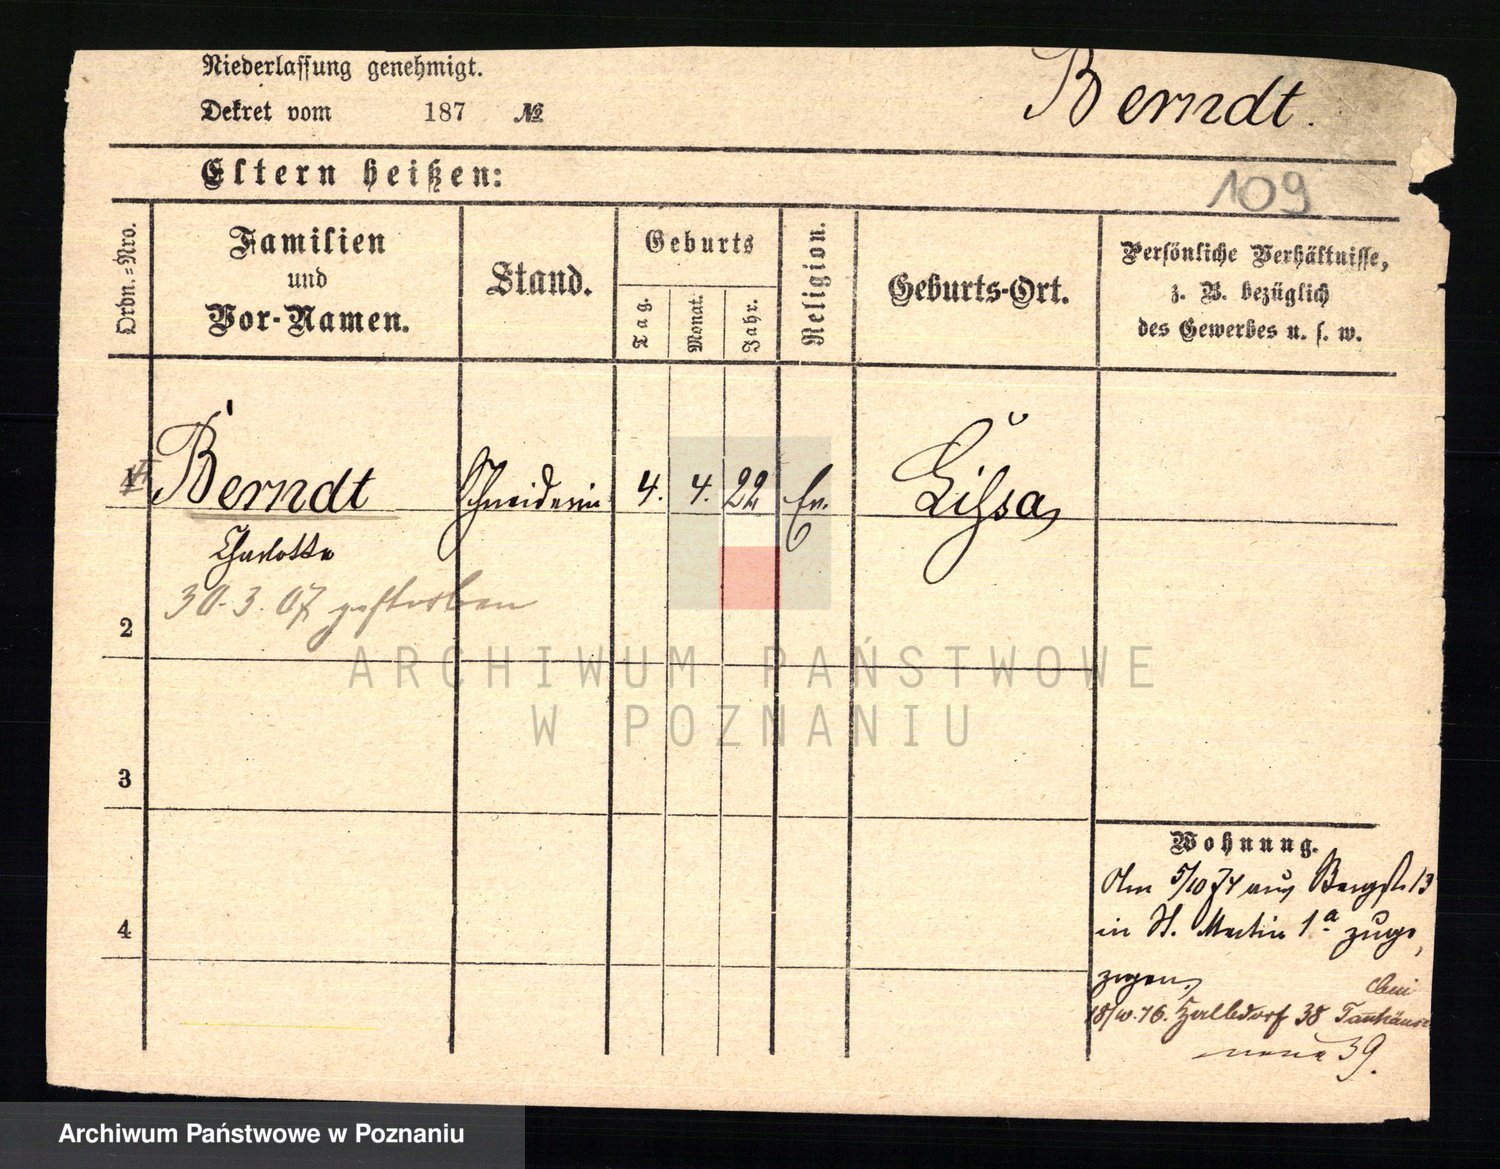 Niederlassung genehmigt.
Dekret vom 187 №
Berndt.
Eltern heißen:
109
Ordn.-Nro.
Familien
und
Vor-Namen.
Stand.
Geburts
Tag.
Monat.
Jahr.
Religion.
Geburts-Ort.
Persönliche Verhältnisse,
z. B. bezüglich
des Gewerbes u. s. w.
1 Berndt Schneiderin 4. 4. 22 Ev. Lissa
Charlotte
30.3.07 gestorben
2
3
4
Wohnung.
Am 5/10 74 aus Bergstr 13
in St. Martin 1a zuge
zogen,
18/10.76. Halbdorf 38 bei
neue 39.
ARCHIWUM PAŃSTWOWE
W POZNANIU
Archiwum Państwowe w Poznaniu